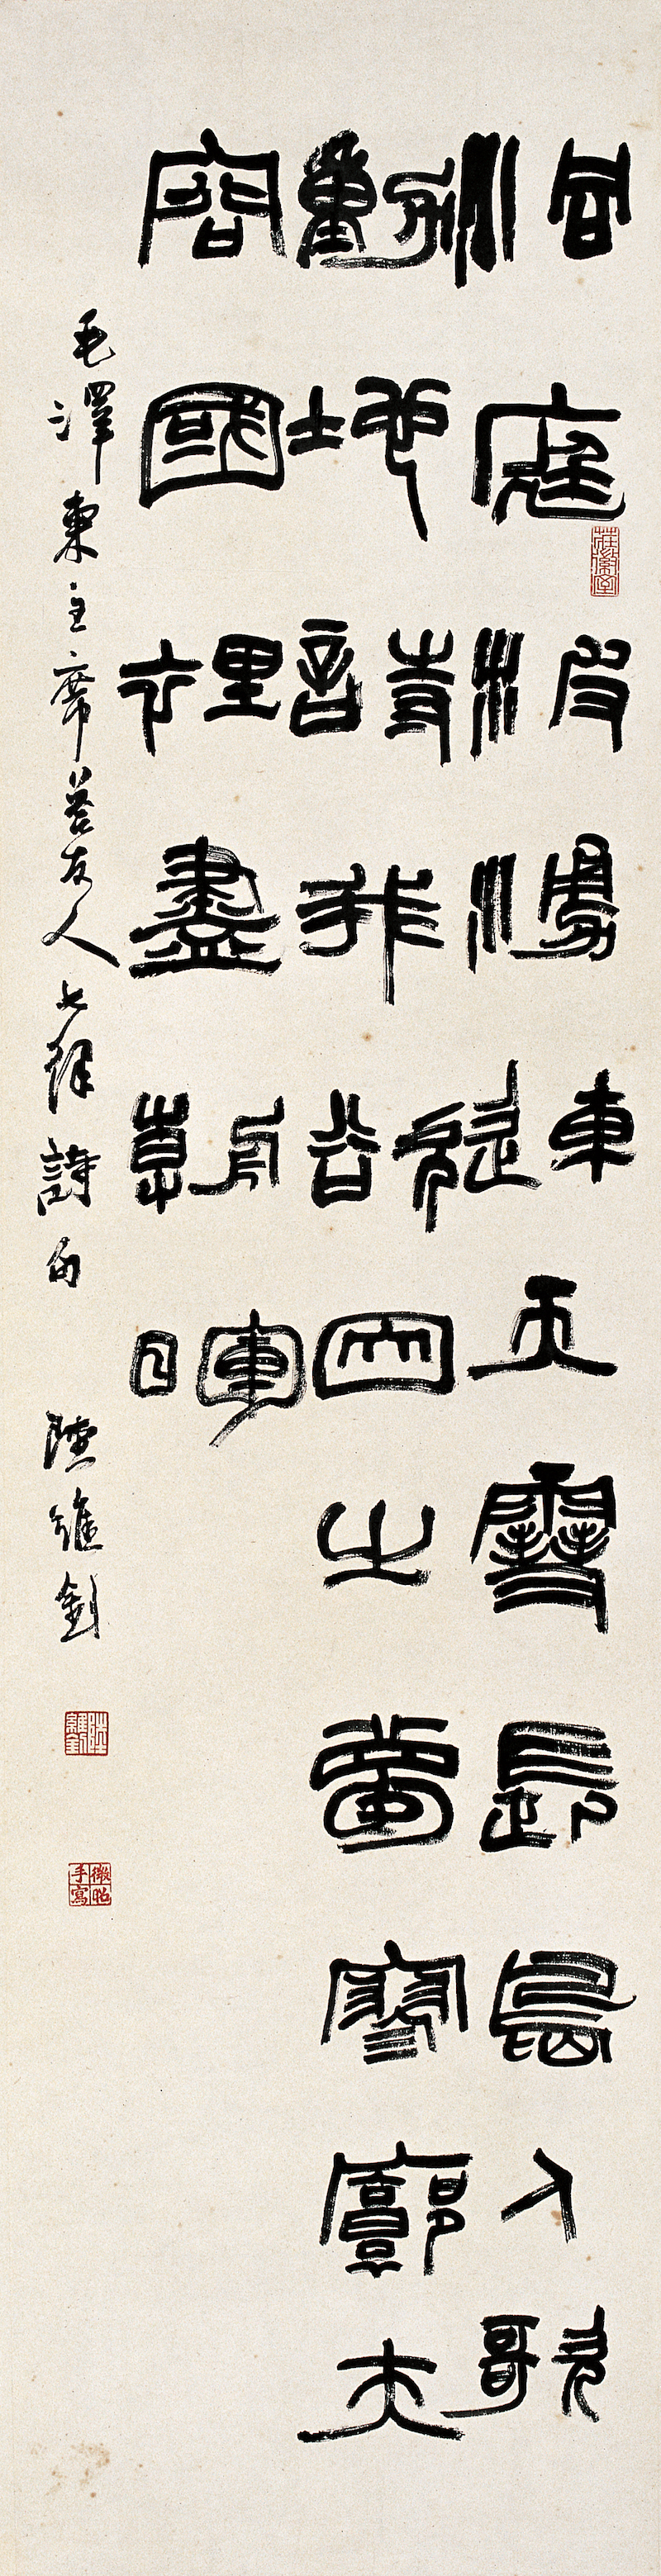 洞庭波湧連天雪長島人歌
動地詩我欲因之夢寥廓夫
容國裡盡朝暉
毛澤東主席荅友人七律詩句 陸維釗
莊徽室
陸維釗
微昭手寫